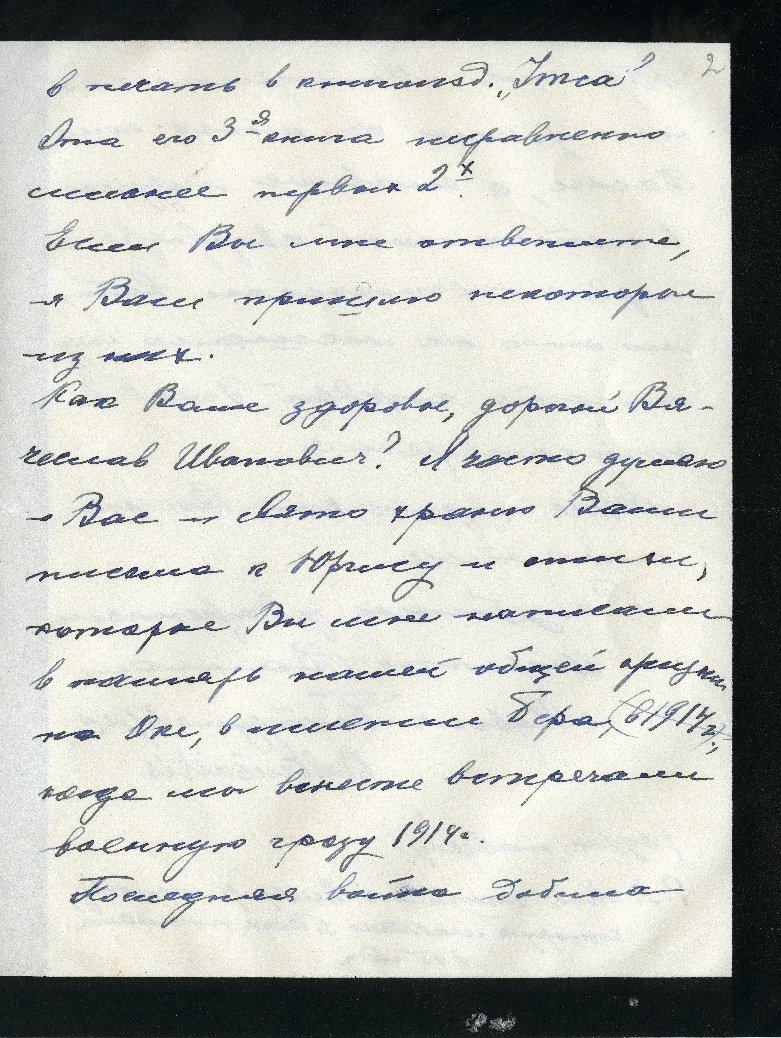 2
в печать в книгоизд. „Imca“
Эта его 3-я книга несравненно
сильнее первых 2-х.
Если Вы мне ответите,
я Вам пришлю некоторые
из них.
Как Ваше здоровье, дорогой Вя-
чеслав Иванович? Я часто думаю
о Вас и свято храню Ваши
письма к Юргису и стихи,
которые Вы мне написали
в память нашей общей жизни
на Оке, в имении Бера, (в 1914 г.),
когда мы вместе встречали
военную грозу 1914 г.
Последняя война добила